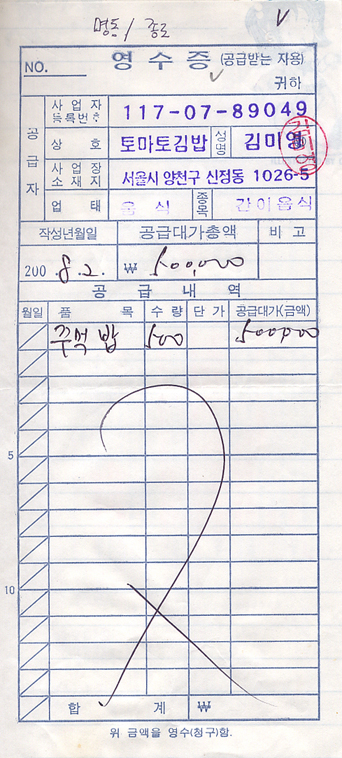 명동 / 종로
NO.
영수증 (공급받는 자용)
귀하
공급자
사업자등록번호 117-07-89049
상호 토마토김밥 성명 김미영
사업장소재지 서울시 양천구 신정동 1026-5
업태 음식 종목 간이음식
작성년월일 공급대가총액 비고
200 8.2. ₩ 500,000
공급내역
월일 품목 수량 단가 공급대가(금액)
주먹밥 500 500,000
5
10
합계 ₩
위 금액을 영수(청구)함.